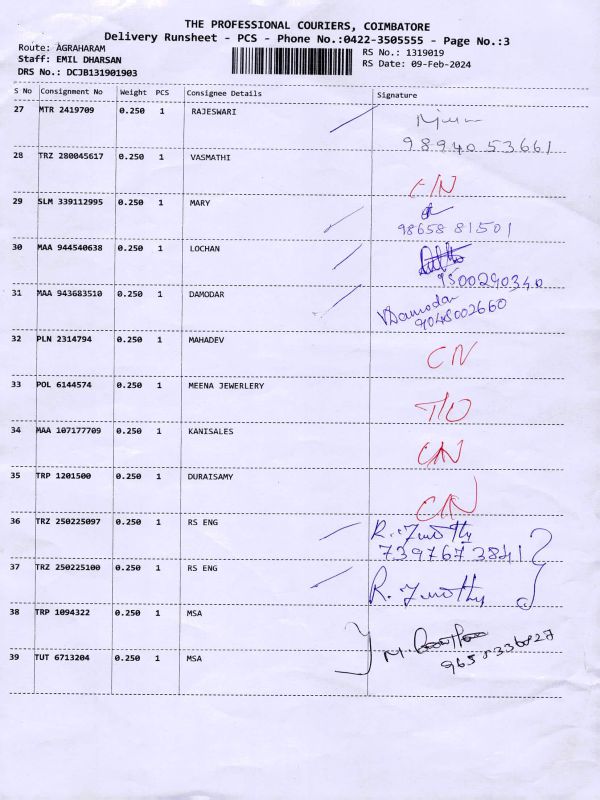 THE PROFESSIONAL COURIERS, COIMBATORE
Delivery Runsheet - PCS - Phone No.:0422-3505555 - Page No.:3
Route: AGRAHARAM
Staff: EMIL DHARSAN
DRS No.: DCJB131901903
RS No.: 1319019
RS Date: 09-Feb-2024
S No Consignment No Weight PCS Consignee Details Signature
27 MTR 2419709 0.250 1 RAJESWARI
98940 53661
28 TRZ 280045617 0.250 1 VASMATHI
CN
29 SLM 339112995 0.250 1 MARY
98658 81501
30 MAA 944540638 0.250 1 LOCHAN
9500290340
31 MAA 943683510 0.250 1 DAMODAR
V Damodar
9048002660
32 PLN 2314794 0.250 1 MAHADEV
CN
33 POL 6144574 0.250 1 MEENA JEWERLERY
T/O
34 MAA 107177709 0.250 1 KANISALES
CN
35 TRP 1201500 0.250 1 DURAISAMY
CN
36 TRZ 250225097 0.250 1 RS ENG R. Timothy
7397673841
37 TRZ 250225100 0.250 1 RS ENG R. Timothy
38 TRP 1094322 0.250 1 MSA
39 TUT 6713204 0.250 1 MSA M.